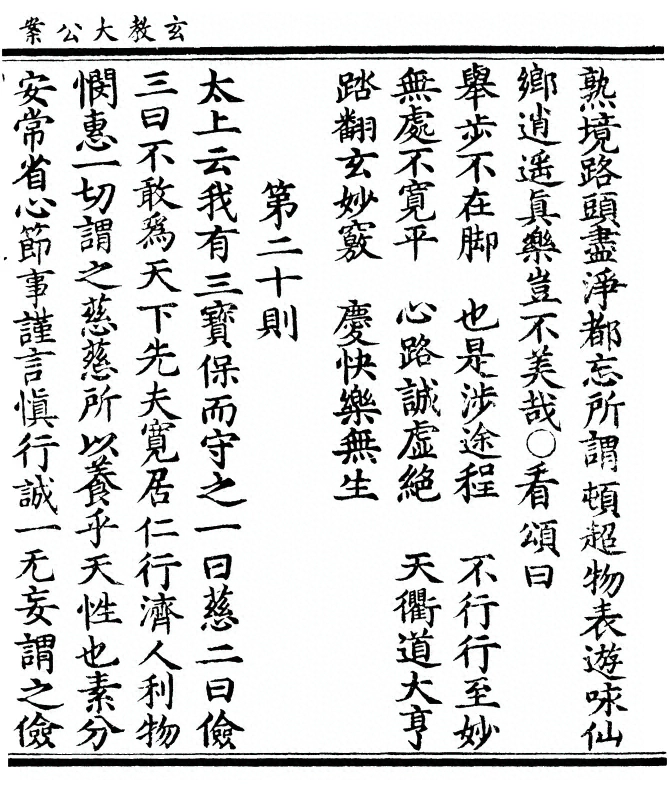 玄教大公案
熟境路頭盡淨都忘所謂頓超物表遊味仙
鄉逍遥眞樂豈不美哉○看頌曰
舉步不在脚　也是涉途程　不行行至妙
無處不寬平　心路誠虛絕　天衢道大亨
踏翻玄妙竅　慶快樂無生
第二十則
太上云我有三寶保而守之一曰慈二曰儉
三曰不敢爲天下先夫寬居仁行濟人利物
憫惠一切謂之慈慈所以養乎天性也素分
安常省心節事謹言愼行誠一无妄謂之儉